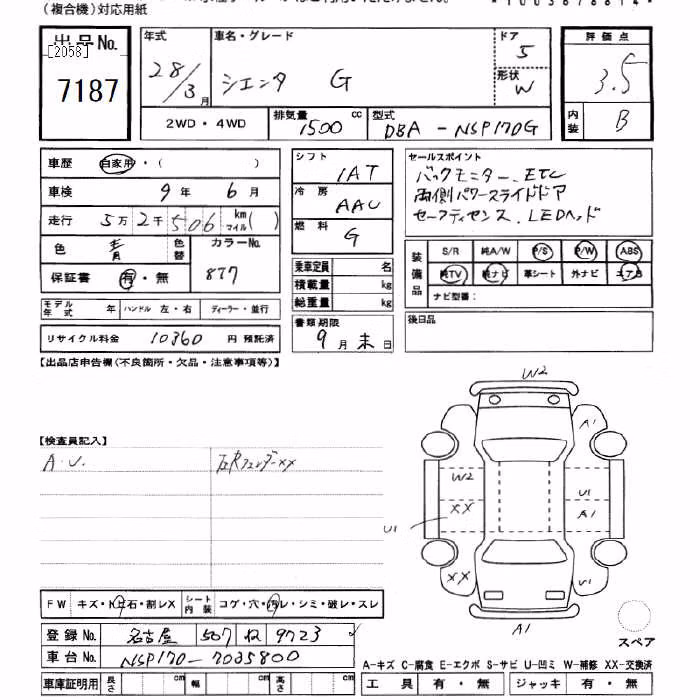 (複合機)対応用紙
出品No.
[2058]
7187
年式
28/3月
車名・グレード
シエンタ G
ドア
5
形状
W
評価点
3.5
内装
B
2WD・4WD
排気量
1500 cc
型式
DBA-NSP170G
車歴 自家用・( )
車検 9年 6月
走行 5万2千506 km マイル( )
色 青
色替
カラーNo.
877
保証書 有・無
モデル年式 年
ハンドル 左・右
ディーラー・並行
リサイクル料金 10360 円 預託済
シフト
IAT
冷房
AAC
燃料
G
乗車定員 名
積載量 kg
総重量 kg
書類期限
9月末日
セールスポイント
バックモニター. ETC
両側パワースライドドア
セーフティセンス. LEDヘッド
装備品
S/R 純A/W P/S P/W ABS
純TV 純ナビ 革シート 外ナビ エアB
ナビ型番:
後日品
【出品店申告欄(不良箇所・欠品・注意事項等)】
【検査員記入】
A.U.
右Rフェンダーxx
W2
A1
W2
U1
XX
A1
U1
XX
U1
A1
スペア
FW キズ・トビ石・割レX
シート内装 コゲ・穴・汚レ・シミ・破レ・スレ
登録No. 名古屋 507 ね 9723
車台No. NSP170-7035800
車庫証明用 長さ cm 幅 cm 高さ cm
A-キズ C-腐食 E-エクボ S-サビ U-凹ミ W-補修 XX-交換済
工具 有・無 ジャッキ 有・無